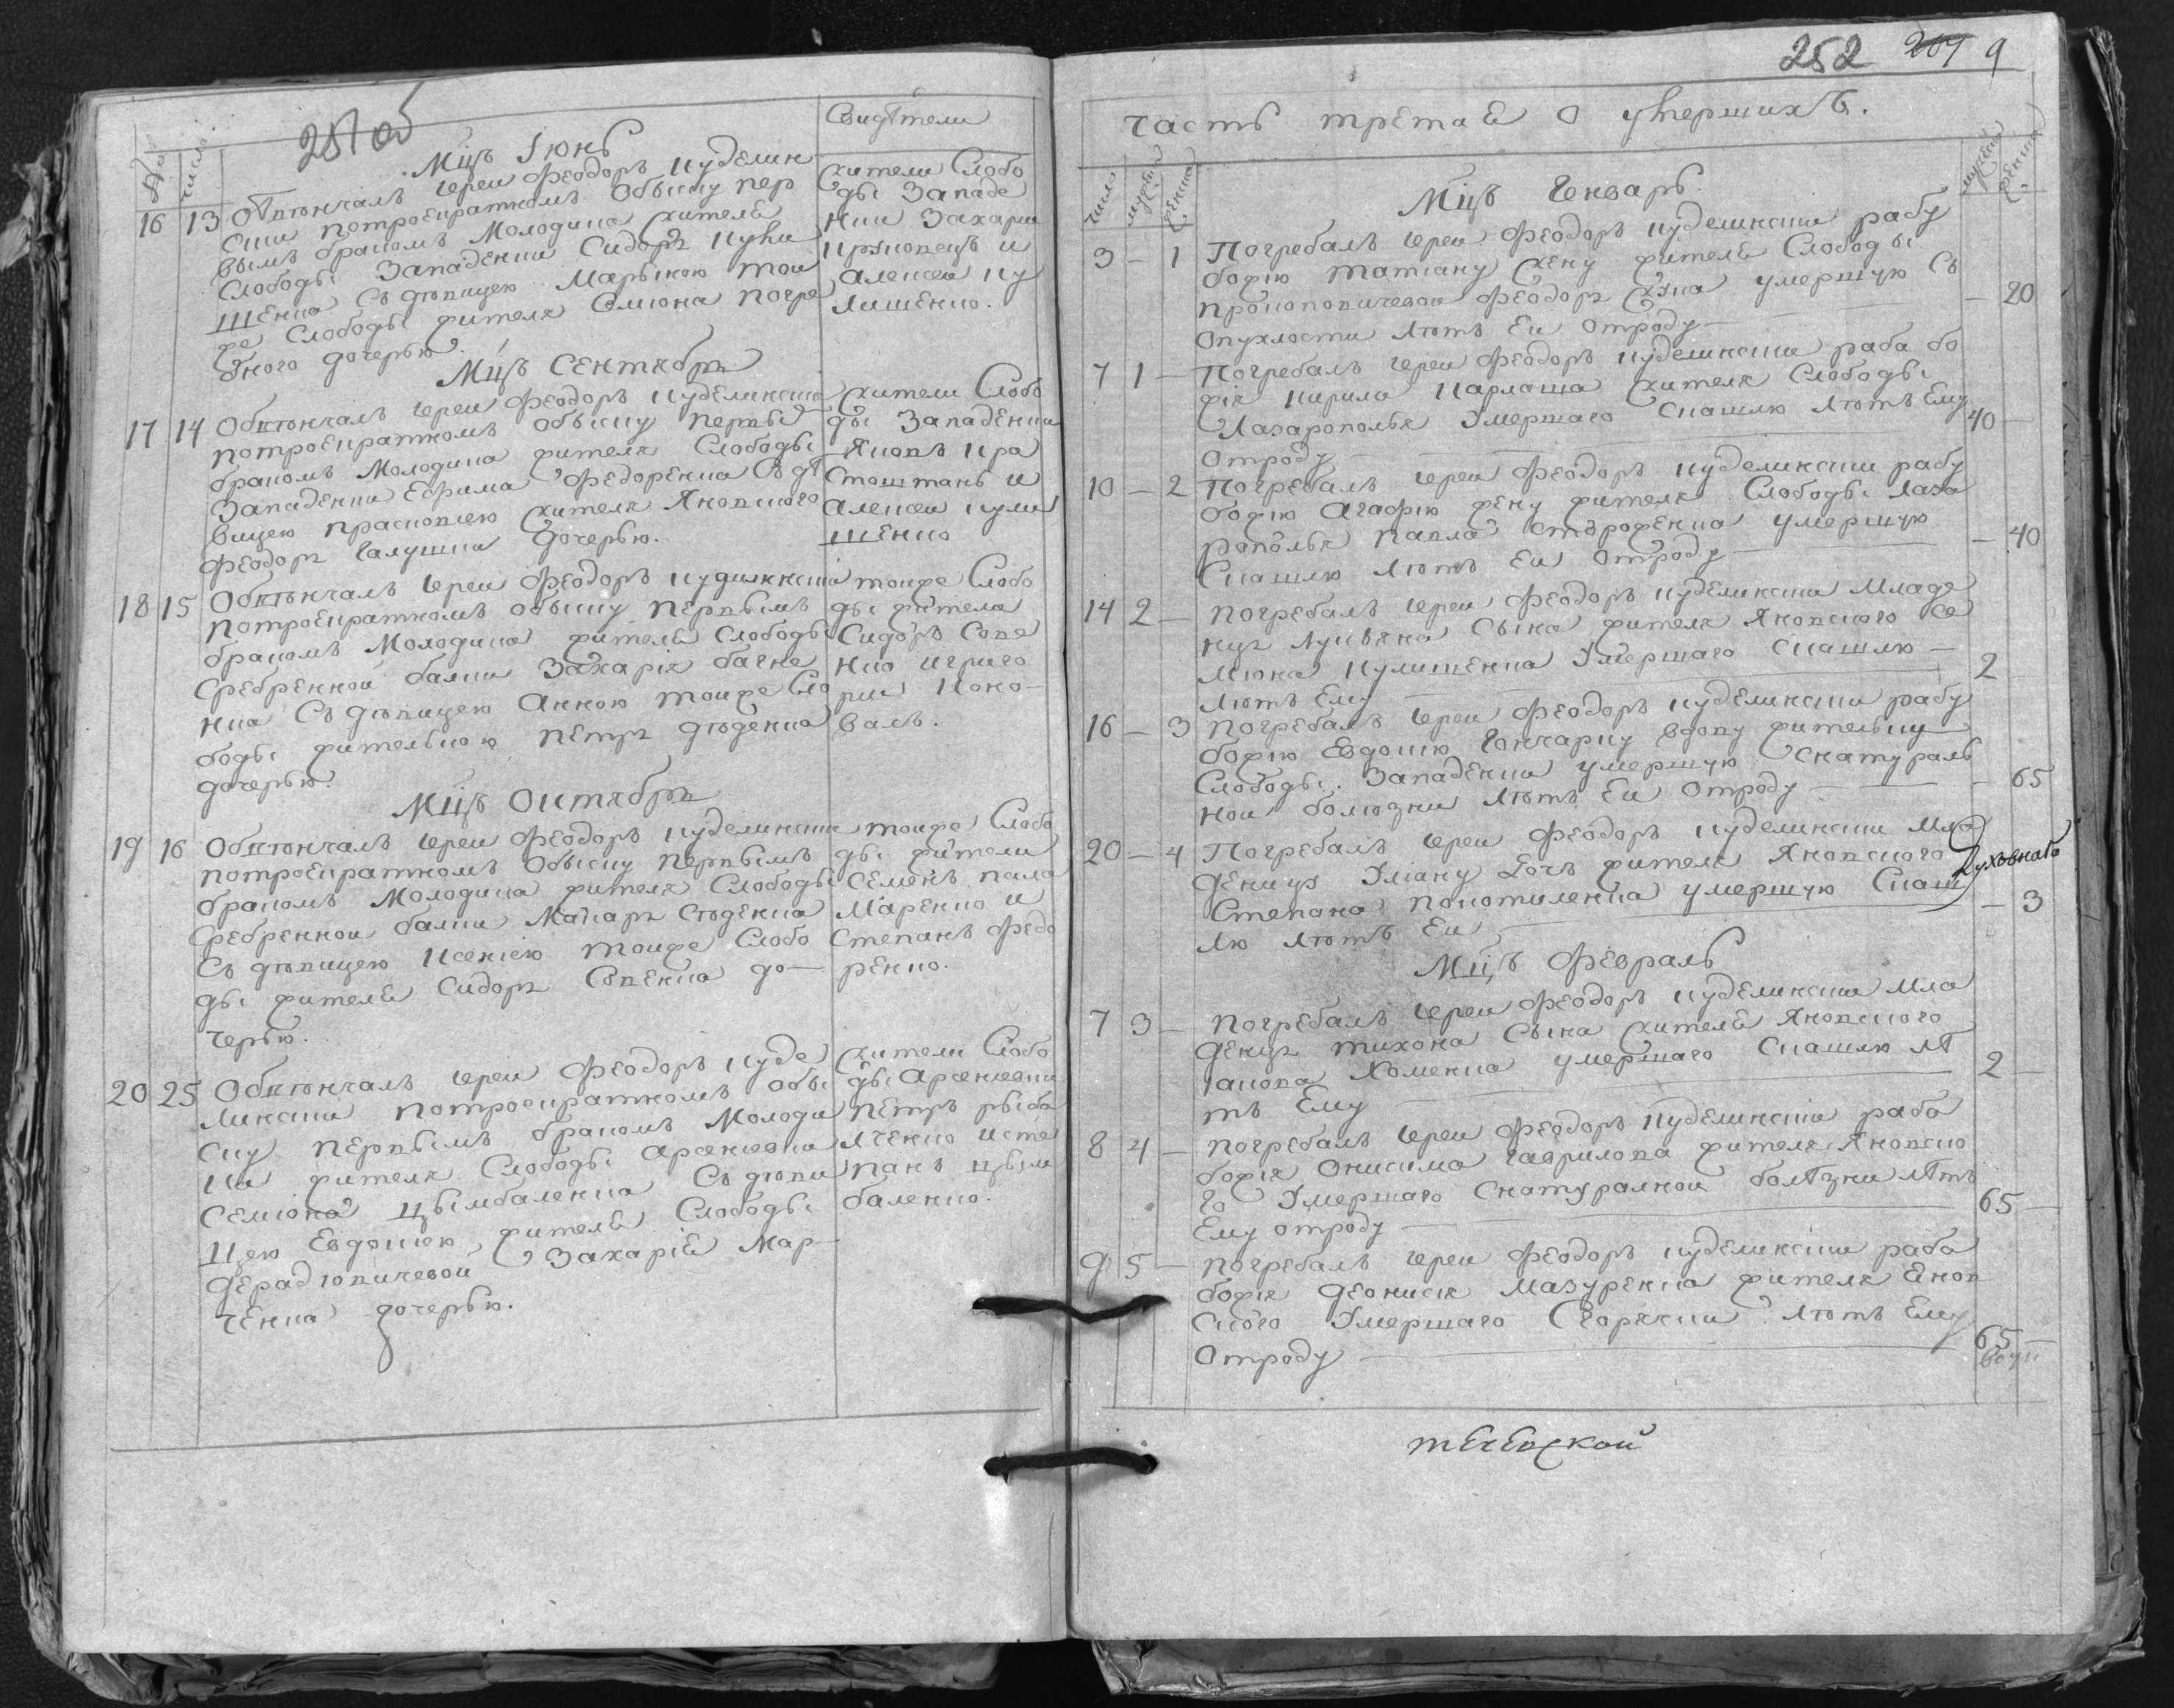 251 об
Свидѣтели
число
Мцъ Іюнь
16 13 Обвѣнчалъ Iереи Феодоръ Куделин
ски потроекратномъ Обыску пер
вымъ бракомъ Молодика жителя
Слободы Западенки Сидора
шенка Съ дѣвицею Марыною тои
же Слободы жителя Семіона Погре
бного дочерью.
жители Слобо
ды Западе
нки Захарии
и
Алексеи Ку
лишенко.
Мцъ Сентябръ
17 14 Обвѣнчалъ Iереи Феодоръ Куделинскии
потроекратномъ обыску первы
бракомъ Молодика жителя Слободы
Западенки Ефима Федоренка Съ дѣ
вицею Прасковiею жителя Яковского
Феодора Галушки дочерью.
жители Слобо
ды Западенки
Яковъ Кра
сташтанъ и
Алексеи Кули
шенко
18 15 Обвѣнчалъ Iереи Феодоръ Куделинскии
потроекратномъ обыску первымъ
бракомъ Молодика жителя Слободы
Сребренной балки Захарія Бачне
нка Съ дѣвицею Анною тоиже Сло
боды жителькою Петра Дѣденка
дочерью.
тоиже Слобо
ды жители
Сидоръ Сове
нко и Григо
рии Коно-
валъ.
Мцъ Октябръ
19 16 Обвѣнчалъ Iереи Феодоръ Куделинскии
потроекратномъ Обыску первымъ
бракомъ Молодика жителя Слободы
Сребренкои балки Макара Стѣценка
Съ дѣвицею Ксеніею тоиже Слобо
ды жителя Сидора Совенка до-
черью.
тоиже Слобо
ды жители
Семенъ Пала
маренко и
Степанъ Федо
ренко.
20 25 Обвѣнчалъ Iереи Феодоръ Куде
линскии потроекратномъ обы
ску первымъ бракомъ Молоди
ка жителя Слободы Арсеніевки
Семіона Цымбаленка Съ дѣви
цею Евдокіею жителя Слободы
Захарія Мар-
ченка дочерью.
жители Слобо
ды Арсеніевки
Петръ Рыба
лченко и Сте
панъ Цым
баленко.
252 209 9
часть третая о умершихъ.
число мужеска женска
Мцъ Генварь
3 - 1 Погребалъ Iереи Феодоръ Куделинскии рабу
божію Татіану жену жителя Слободы
Прокоповичевои Феодора умершую Съ
опухлости лѣтъ Еи отроду - 20
7 1 - Погребалъ Iереи Феодоръ Куделинскии раба бо
жія Кирила Карлаша жителя Слободы
Лазарополья Умершаго Скашлю лѣтъ Ему
отроду 40 -
10 - 2 Погребалъ Iереи Феодоръ Куделинскии рабу
божію Агафію жену жителя Слободы Лаза
рополья Павла Стороженка умершую
Скашлю лѣтъ Еи отроду - 40
14 2 - Погребалъ Iереи Феодоръ Куделинскии младе
нца Лукіяна Сына жителя Яковского Се
міона Кулишенка Умершаго Скашлю -
лѣтъ Ему 2
16 - 3 Погребалъ Iереи Феодоръ Куделинскии рабу
божію Евдокію Гончарку вдову жительку
Слободы Западенки умершую Снатураль
нои болѣзни лѣтъ Еи отроду - 65
20 - 4 Погребалъ Iереи Феодоръ Куделинскии мла
денца Уліану Дочь жителя Яковского
Степана Покотиленка умершую Скаш
лю лѣтъ Еи - 3
Духовнаго
Мцъ Февраль
7 3 - Погребалъ Iереи Феодоръ Куделинскии мла
денца Тихона Сына жителя Яковского
Iакова Хоменка умершаго Скашлю лѣ
тъ Ему 2 -
8 4 - Погребалъ Iереи Феодоръ Куделинскии раба
божія Онисима Гаврилова жителя Яковско
го Умершаго Снатуралнои болѣзни лѣтъ
Ему отроду 65 -
9 5 - Погребалъ Iереи Феодоръ Куделинскии раба
божія Деонисія Мазуренка жителя Яков
ского Умершаго Сгорячки лѣтъ Ему
отроду 65 -